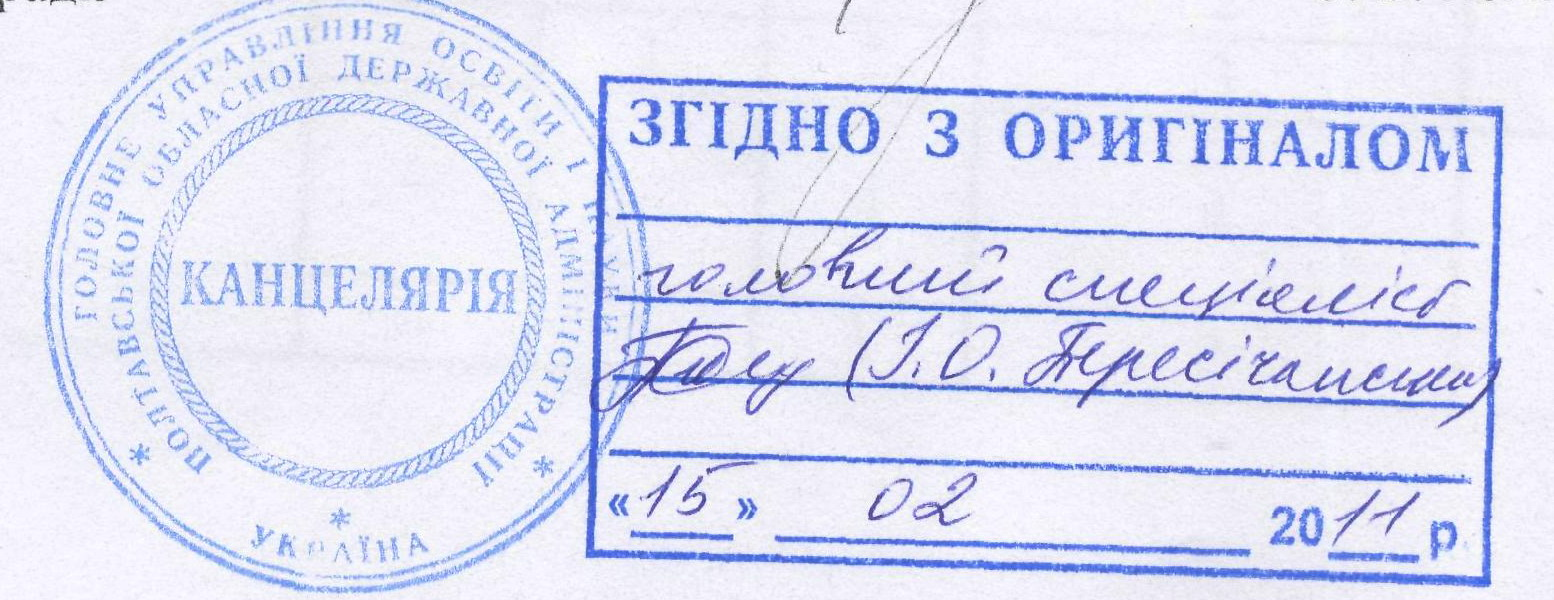 ГОЛОВНЕ УПРАВЛІННЯ ОСВІТИ І НАУКИ
ПОЛТАВСЬКОЇ ОБЛАСНОЇ ДЕРЖАВНОЇ АДМІНІСТРАЦІЇ
КАНЦЕЛЯРІЯ
* УКРАЇНА * *
ЗГІДНО З ОРИГІНАЛОМ
головний спеціаліст
(І.О. Пересічанська)
«15» 02 2011 р.